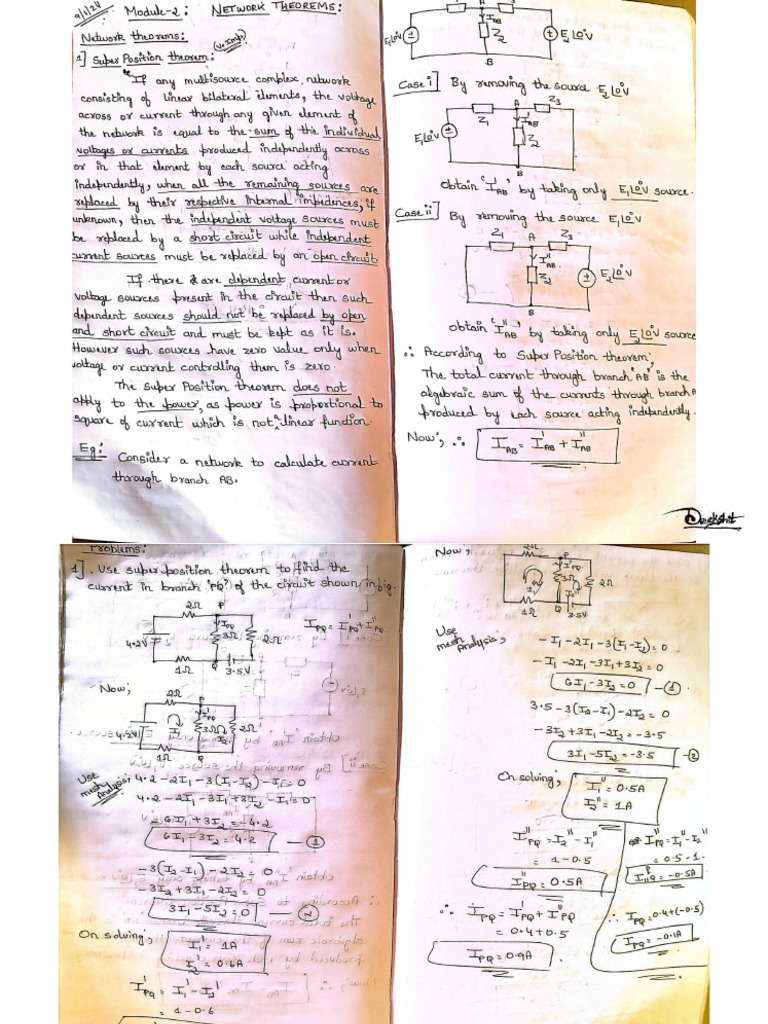 9/1/24 Module-2: NETWORK THEOREMS:
Network theorems:
1] Super Position theorem: (V.Imp)
"If any multisource complex network
consisting of linear bilateral elements, the voltage
across or current through any given element of
the network is equal to the sum of the individual
voltages or currents produced independently across
or in that element by each source acting
independently, when all the remaining sources are
replaced by their respective internal impedences, if
unknown, then the independent voltage sources must
be replaced by a short circuit while independent
current sources must be replaced by an open circuit
If there are dependent current or
voltage sources present in the circuit then such
dependent sources should not be replaced by open
and short circuit and must be kept as it is.
However such sources have zero value only when
voltage or current controlling them is zero.
The super Position theorem does not
apply to the power, as power is proportional to
square of current which is not linear function.
Eg: Consider a network to calculate current
through branch AB.
E1∠0°V
I_AB
Z2
E2∠0°V
B
Case i] By removing the source E2∠0°V
A Z3
Z1
I'_AB
E1∠0°V
Z2
B
Obtain 'I'_AB' by taking only E1∠0°V source.
Case ii] By removing the source E1∠0°V
Z1 A Z3
I''_AB
Z2
E2∠0°V
B
Obtain 'I''_AB' by taking only E2∠0°V source
∴ According to Super Position theorem,
The total current through branch 'AB' is the
algebraic sum of the currents through branch A
produced by each source acting independently.
Now, ∴ I_AB = I'_AB + I''_AB
Problems:
1]. Use super position theorem to find the
current in branch 'PQ' of the circuit shown in fig.
2Ω P
I_PQ
4.2V 3Ω 2Ω
1Ω Q 3.5V
I_PQ = I'_PQ + I''_PQ
Now,
2Ω P
I'_PQ
4.2V I1 3Ω I2 2Ω
1Ω Q
Use mesh Analysis,
4.2 - 2I1 - 3(I1 - I2) - I1 = 0
4.2 - 2I1 - 3I1 + 3I2 - I1 = 0
- 6I1 + 3I2 = -4.2
6I1 - 3I2 = 4.2 — 1
-3(I2 - I1) - 2I2 = 0
-3I2 + 3I1 - 2I2 = 0
3I1 - 5I2 = 0 — 2
On solving,
I1' = 1A
I2' = 0.6A
I'_PQ = I1' - I2'
= 1 - 0.6
Now,
2Ω P
I''_PQ
3Ω 2Ω
1Ω Q 3.5V
Use mesh Analysis,
-I1 - 2I1 - 3(I1 - I2) = 0
-I1 - 2I1 - 3I1 + 3I2 = 0
6I1 - 3I2 = 0 — 1
3.5 - 3(I2 - I1) - 2I2 = 0
-3I2 + 3I1 - 2I2 = -3.5
3I1 - 5I2 = -3.5 — 2
On solving,
I1'' = 0.5A
I2'' = 1A
I''_PQ = I2'' - I1''
= 1 - 0.5
I''_PQ = 0.5A
∴ I_PQ = I'_PQ + I''_PQ
= 0.4 + 0.5
I_PQ = 0.9A
I''_PQ = I1'' - I2''
= 0.5 - 1.
I''_PQ = -0.5A
∴ I_PQ = 0.4 + (-0.5)
I_PQ = -0.1A